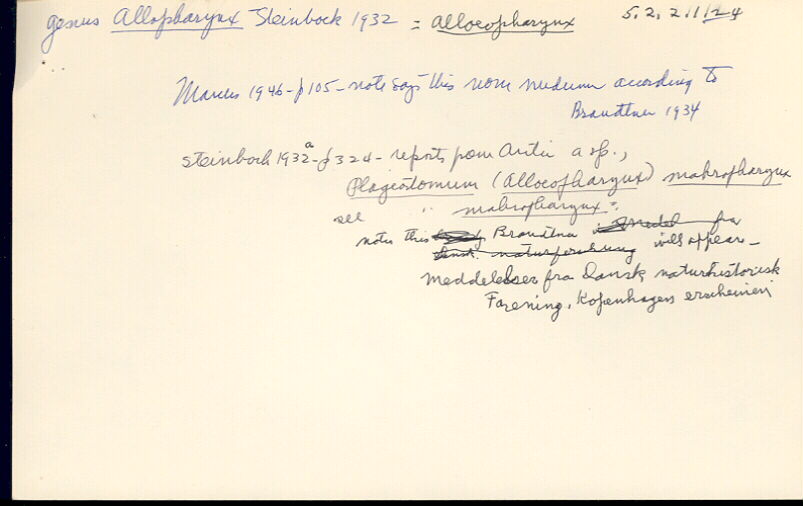 genus Allopharynx Steinbock 1932 = Alloeopharynx 5.2.2.1/12 4
Marcus 1946-p105-note says this nom nudum according to
Brandtner 1934
Steinbock 1932a-p324- reports from Arctic a sp.,
Plagiostomum (Alloeopharynx) makropharynx
see " makropharynx".
notes this Brandtner fra
will appear-
Meddelelser fra Dansk naturhistorisk
Forening, Kopenhagen erscheinen